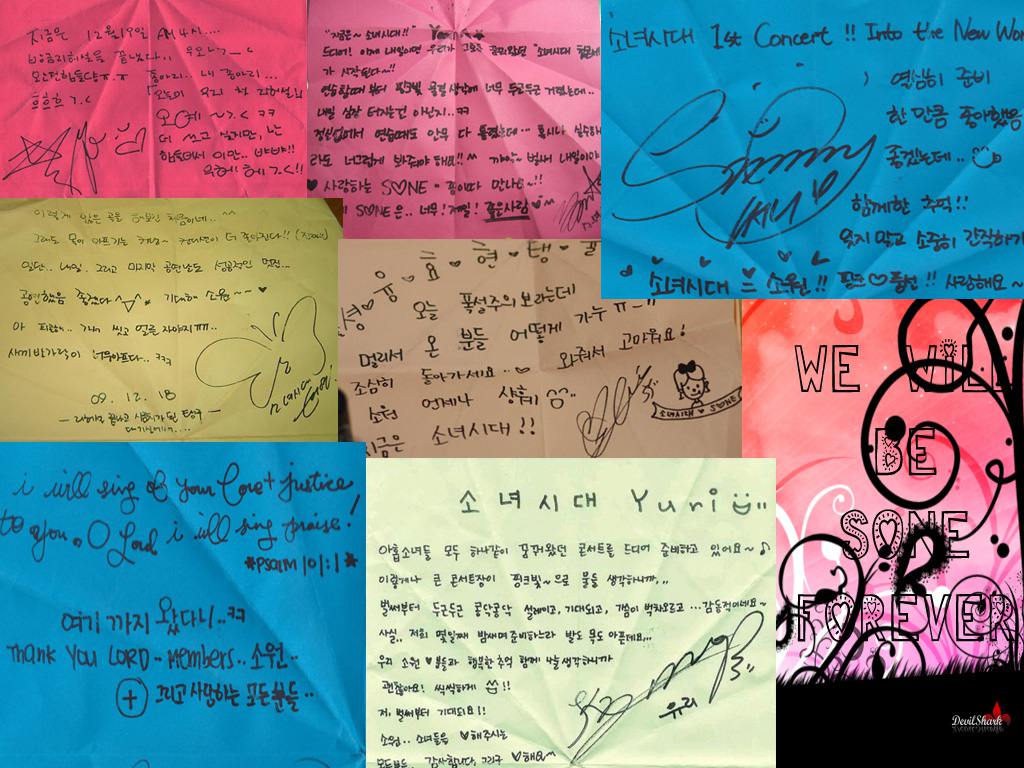 지금은 12월 19일 AM 4시....
방금 리허설을 끝냈다..
온전 힘들다ㅠ.ㅠ 종아리.. 내 종아리...
흐흐흐 >.<
오예 ~>.< ㅋㅋ
더 쓰고 싶지만, 난
힘들어서 이만.. 뱌뱌!!
"지금은~ 소녀시대!!" Yoona
드디어! 이제 내일이면 우리가 그토록 꿈꿔왔던 "소녀시대
가 시작된다~!!
연습할때부터 핑크빛 물결 생각에 너무 두근두근 거렸는데..
내일 심장 터지는건 아닌지..ㅋㅋ
연습때도 안무 다 틀렸는데... 혹시나 실수하
라도 너그럽게 봐줘야 해요!! ^^ 벌써 내일이야
♥ 사랑하는 S♡NE 좋이따 만나요~!!
S♡NE은.. 너무! 제일! 좋은사람 ♥
소녀시대 1st Concert !! Into the New Wor
열심히 준비
한 만큼 좋아했음
좋겠는데..
함께한 추억!!
잊지 말고 소중히 간직하기
소녀시대 는 소원!! 핑크♡풍선!! 사랑해요~
이렇게 많은 곡을 해보긴 처음이네.. ^^
그래도 목이 아프기는 커녕~ 컨디션이 더 좋아진다!!
일단.. 내일. 그리고 마지막 공연날도 성공적인 멋진...
공연했음 좋겠다 ^_^ 기대해 소원~~♥
아 피곤해.. 가서 씻고 얼른 자야지 ㅠㅠ
새끼발가락이 너무아프다.. ㅋㅋㅋ
09. 12. 18
소녀시대
유 ♥ 효 ♥ 현 ♥ 탱 ♥
오늘 폭설주의보라는데
멀리서 온 분들 어떻게 가누 ㅠ..!!
조심히 돌아가세요..♥ 와줘서 고마워요!
소원 언제나 샤훼
지금은 소녀시대!!
소녀시대 ♥ S♥NE
WE WILL
BE
SONE
FOREVER
DevilShark
i will sing of your love + justice
to you, O Lord i will sing praise!
*PSalm 101:1*
여기까지 왔다니..ㅋㅋ
Thank You LORD ~ Members.. 소원..
+ 그리고 사랑하는 모든분들..
소녀시대 Yuri
아홉소녀들 모두 하나같이 꿈꿔왔던 콘서트를 드디어 준비하고 있어요~♪
이렇게나 큰 콘서트장이 핑크빛~으로 물들 생각하니까,,
벌써부터 두근두근 콩닥콩닥 설레이고, 기대되고, 가슴이 벅차오르고 ...감동적이네요~
사실, 저희 몇일째 밤새며 준비하느라 발도 목도 아픈데요,,,
우리 소원♥분들과 행복한 추억 함께 나눌생각하니까
괜찮아요! 씩씩하게 !!
저, 벌써부터 기대되요!!
소원.. 소녀들을 ♥해주시는
모든분들, 감사합니다, 그리구 ♡해요~
유리